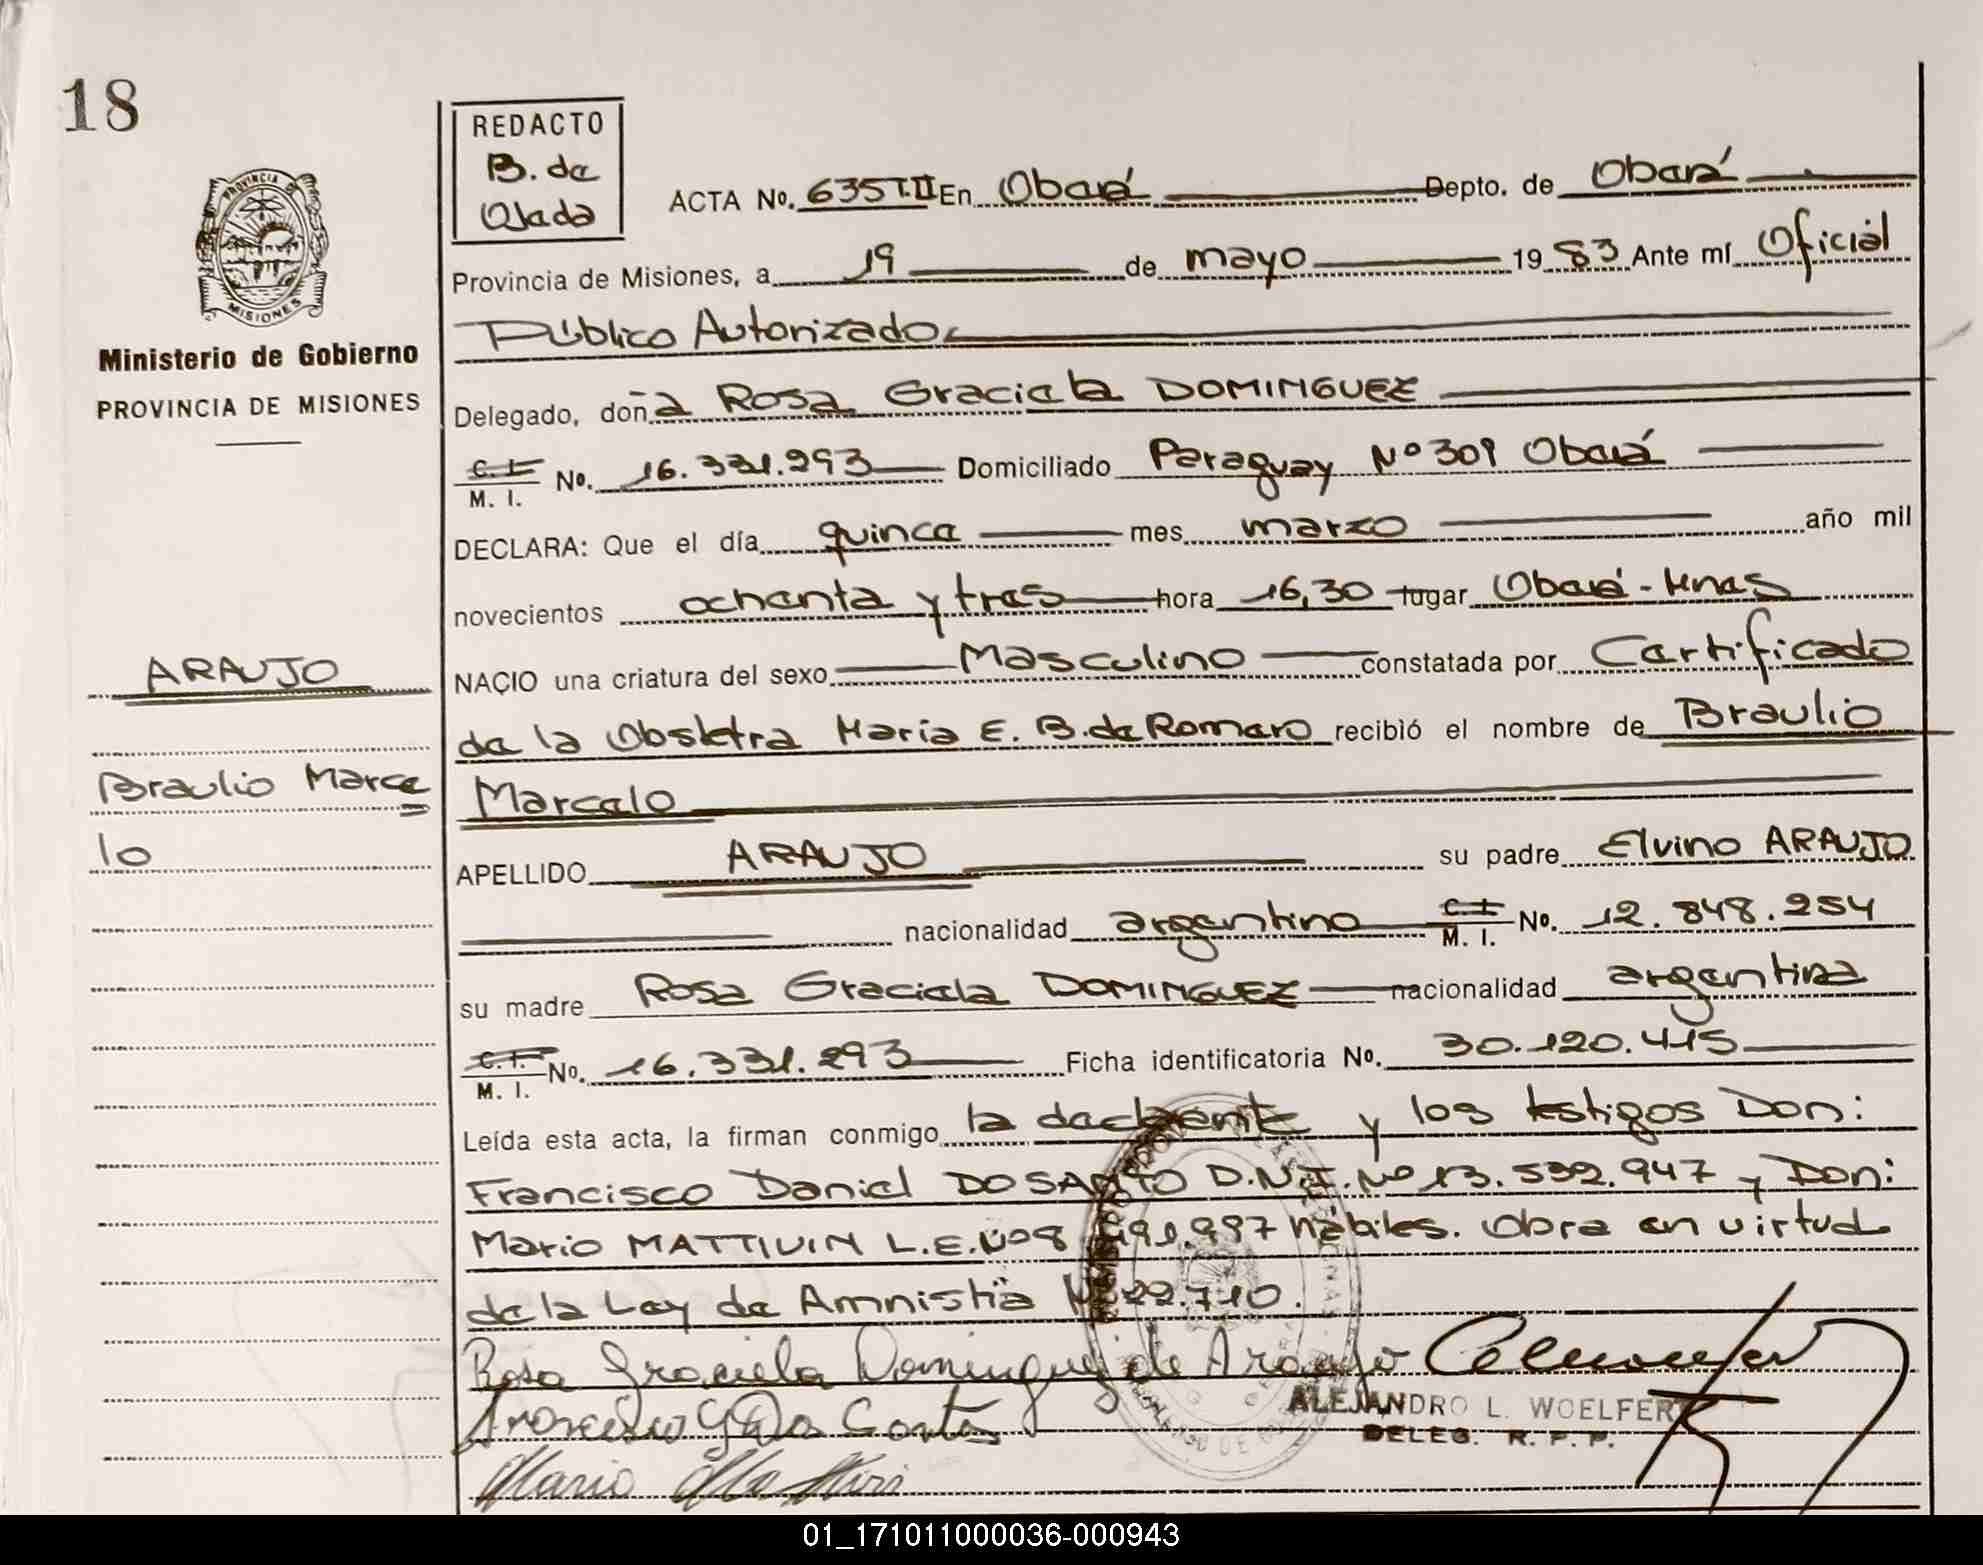 18
REDACTO
B. de
Ojeda
ACTA No. 635 T.II En Oberá Depto. de Oberá
PROVINCIA DE
MISIONES
Ministerio de Gobierno
PROVINCIA DE MISIONES
Provincia de Misiones, a 19 de mayo 1983 Ante mí Oficial
Público Autorizado
Delegado, doña Rosa Graciela DOMINGUEZ
C. I.
M. I. No. 16.331.293 Domiciliado Paraguay Nº 309 Oberá
DECLARA: Que el día quince mes marzo año mil
novecientos ochenta y tres hora 16,30 lugar Oberá - Mnes
ARAUJO
NACIO una criatura del sexo Masculino constatada por Certificado
de la Obstetra Maria E. B. de Romero recibió el nombre de Braulio
Braulio Marce
lo
Marcelo
APELLIDO ARAUJO su padre Elvino ARAUJO
nacionalidad argentino C. I. M. I. No. 12.848.254
su madre Rosa Graciela DOMINGUEZ nacionalidad argentina
C. I.
M. I. No. 16.331.293 Ficha identificatoria No. 30.120.415
Leída esta acta, la firman conmigo la declarente y los testigos Don:
Francisco Daniel DO SANTO D.N.I. Nº 13.532.947 y Don:
Mario MATTIVIN L.E. Nº 8 491.997 hábiles. Obra en virtud
de la Ley de Amnistia Nº 22.710.
Rosa Graciela Dominguez de Araujo
ALEJANDRO L. WOELFERT
DELEG. R. P. P.
Mario
01_171011000036-000943